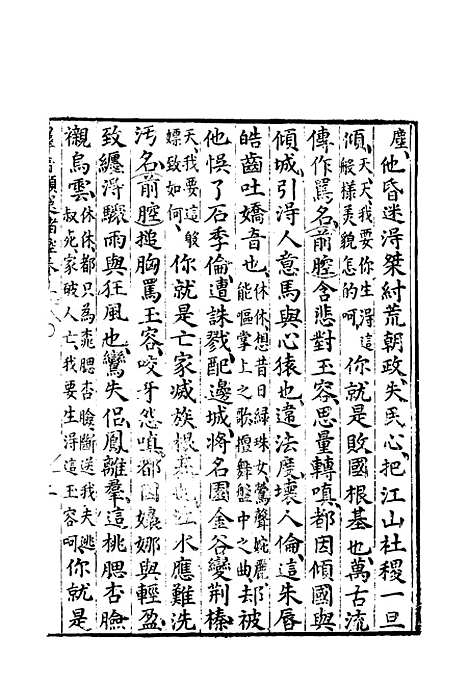 塵、他昏迷淂桀紂荒朝政、失民心、把江山社稷一旦
傾、天天、我要你生淂這般樣美貌怎的呵、你就是敗國根基也、萬古流
傳作罵名、前腔含悲對玉容、思量轉嗔、都因傾國與
傾城、引淂人意馬與心猿也、違法度、壞人倫、這朱唇
皓齒吐嬌音也、休休、想昔日綠珠女、鶯聲婉麗、能嘔掌上之歌、檀舞盤中之曲、却被
他悞了石季倫、遭誅戮、配邊城、將名園金谷變荆榛、
天、我要這般嫖致如何、你就是亡家滅族根基也、江水應難洗
汚名、前腔搥胸罵玉容、咬牙怨嗔、都因嬝娜與輕盈、
致纏淂驟雨與狂風也、鸞失侣、鳳離羣、這桃腮杏臉
襯烏雲、休休、都只為桃腮杏臉、斷送我夫逃叔死、家破人亡、我要生淂這玉容呵、你就是